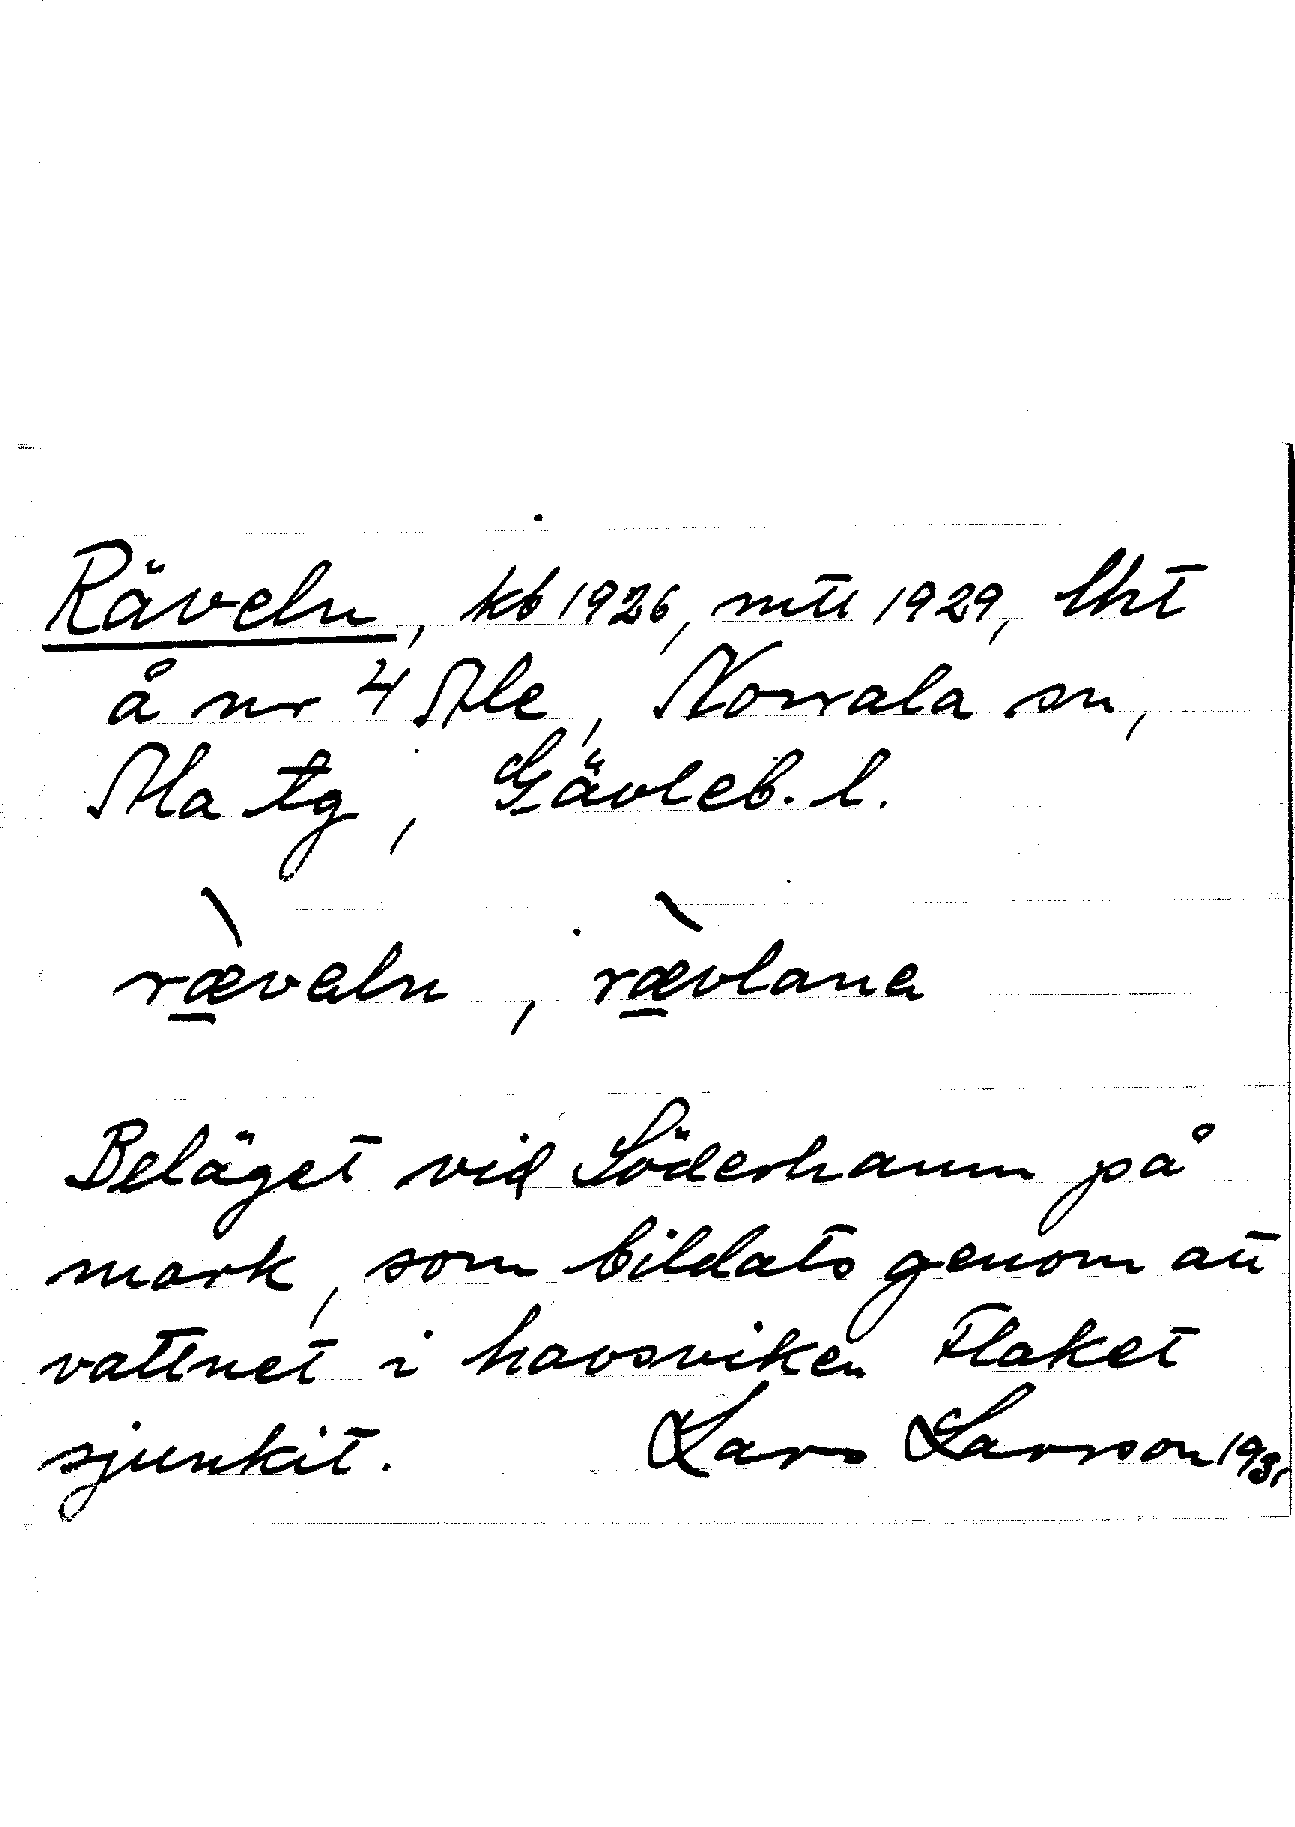 Räveln, kb 1926, mtl 1929, lht
å nr 4 Ale, Norrala sn,
Ala tg, Gävleb. l.
rævəln, rævlana
Beläget vid Söderhamn på
mark, som bildats genom att
vattnet i havsviken Flaket
sjunkit. Lars Larsson